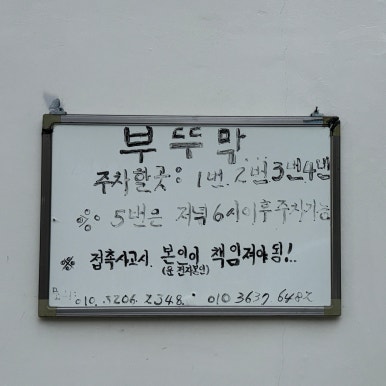 부뚜막
주차할곳: 1번. 2번 3번 4번
※ 5번은 저녁 6시이후 주차가능
※ 접촉사고시. 본인이 책임져야 됨!..
(운전자본인)
010. 3206. 2348. 010 3637 6482